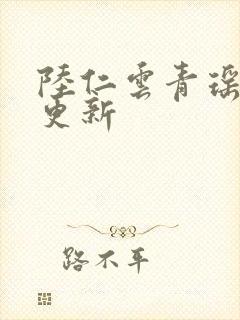 陸仁雲青瑶
更新
路不平